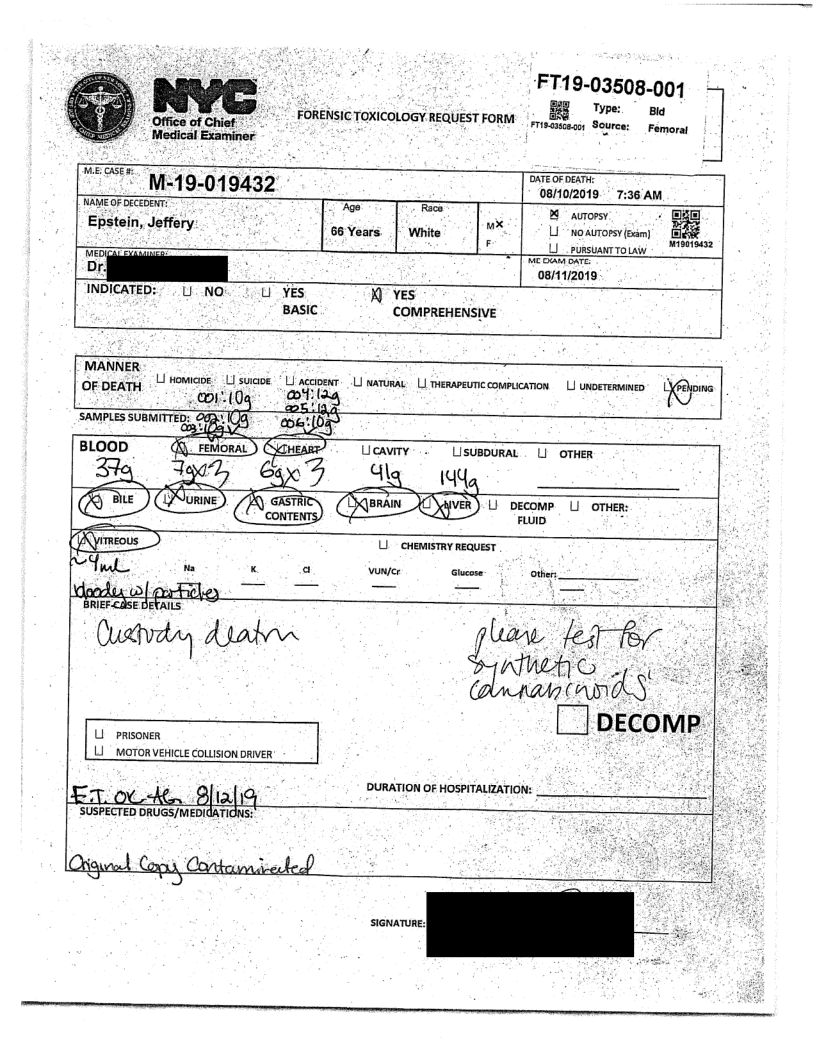 NYC
Office of Chief
Medical Examiner
FORENSIC TOXICOLOGY REQUEST FORM
FT19-03508-001
FT19-03508-001
Type: Bld
Source: Femoral
M.E. CASE #: M-19-019432
DATE OF DEATH:
08/10/2019 7:36 AM
NAME OF DECEDENT:
Epstein, Jeffery
Age
66 Years
Race
White
M X
F
☒ AUTOPSY
☐ NO AUTOPSY (Exam)
☐ PURSUANT TO LAW
M19019432
MEDICAL EXAMINER:
Dr.
ME EXAM DATE:
08/11/2019
INDICATED: ☐ NO ☐ YES BASIC ☒ YES COMPREHENSIVE
MANNER OF DEATH ☐ HOMICIDE ☐ SUICIDE ☐ ACCIDENT ☐ NATURAL ☐ THERAPEUTIC COMPLICATION ☐ UNDETERMINED ☒ PENDING
001:10g 004:12g
005:12g
SAMPLES SUBMITTED: 002:10g 006:10g
003:10g
BLOOD ☒ FEMORAL ☒ HEART ☐ CAVITY ☐ SUBDURAL ☐ OTHER
37g 7gx3 6gx3 41g 144g
☒ BILE ☒ URINE ☒ GASTRIC CONTENTS ☒ BRAIN ☒ LIVER ☐ DECOMP FLUID ☐ OTHER:
☒ VITREOUS ☐ CHEMISTRY REQUEST
~4ml Na K Cl VUN/Cr Glucose Other:
bloody w/ particles
BRIEF CASE DETAILS
Custody death
please test for
synthetic
cannabinoids
DECOMP
☐ PRISONER
☐ MOTOR VEHICLE COLLISION DRIVER
E.T. OK 8/12/19
DURATION OF HOSPITALIZATION:
SUSPECTED DRUGS/MEDICATIONS:
Original Copy Contaminated
SIGNATURE: